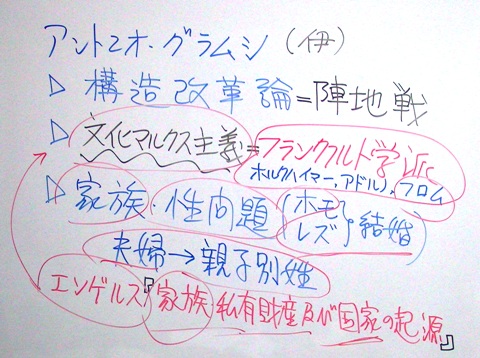 アントニオ・グラムシ(伊)
▷ 構造改革論=陣地戦
▷ 文化マルクス主義=フランクフルト学派
ホルクハイマー,アドルノ,フロム
▷ 家族・性問題(ホモ レズ}結婚)
夫婦→親子別姓
エンゲルス『家族私有財産及び国家の起源』